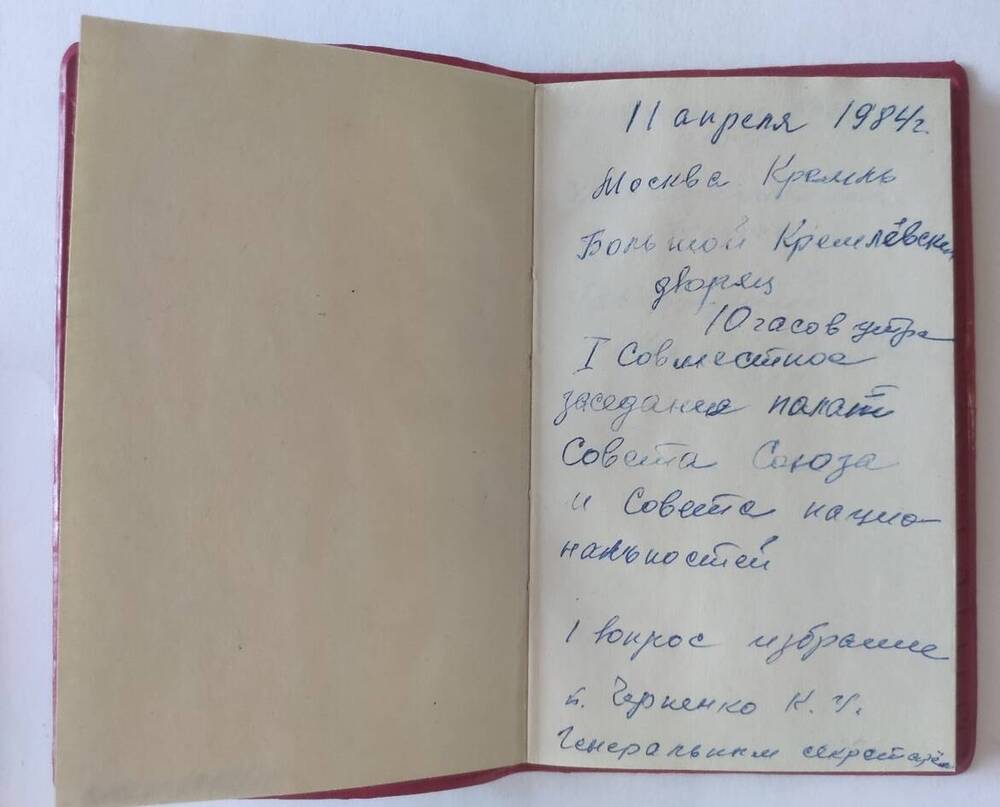 11 апреля 1984г.
Москва Кремль
Большой Кремлёвский
дворец
10 часов утра
I Совместное
заседание палат
Совета Союза
и Совета нацио-
нальностей
1 вопрос избрание
т. Черненко К. У.
Генеральным секретарём